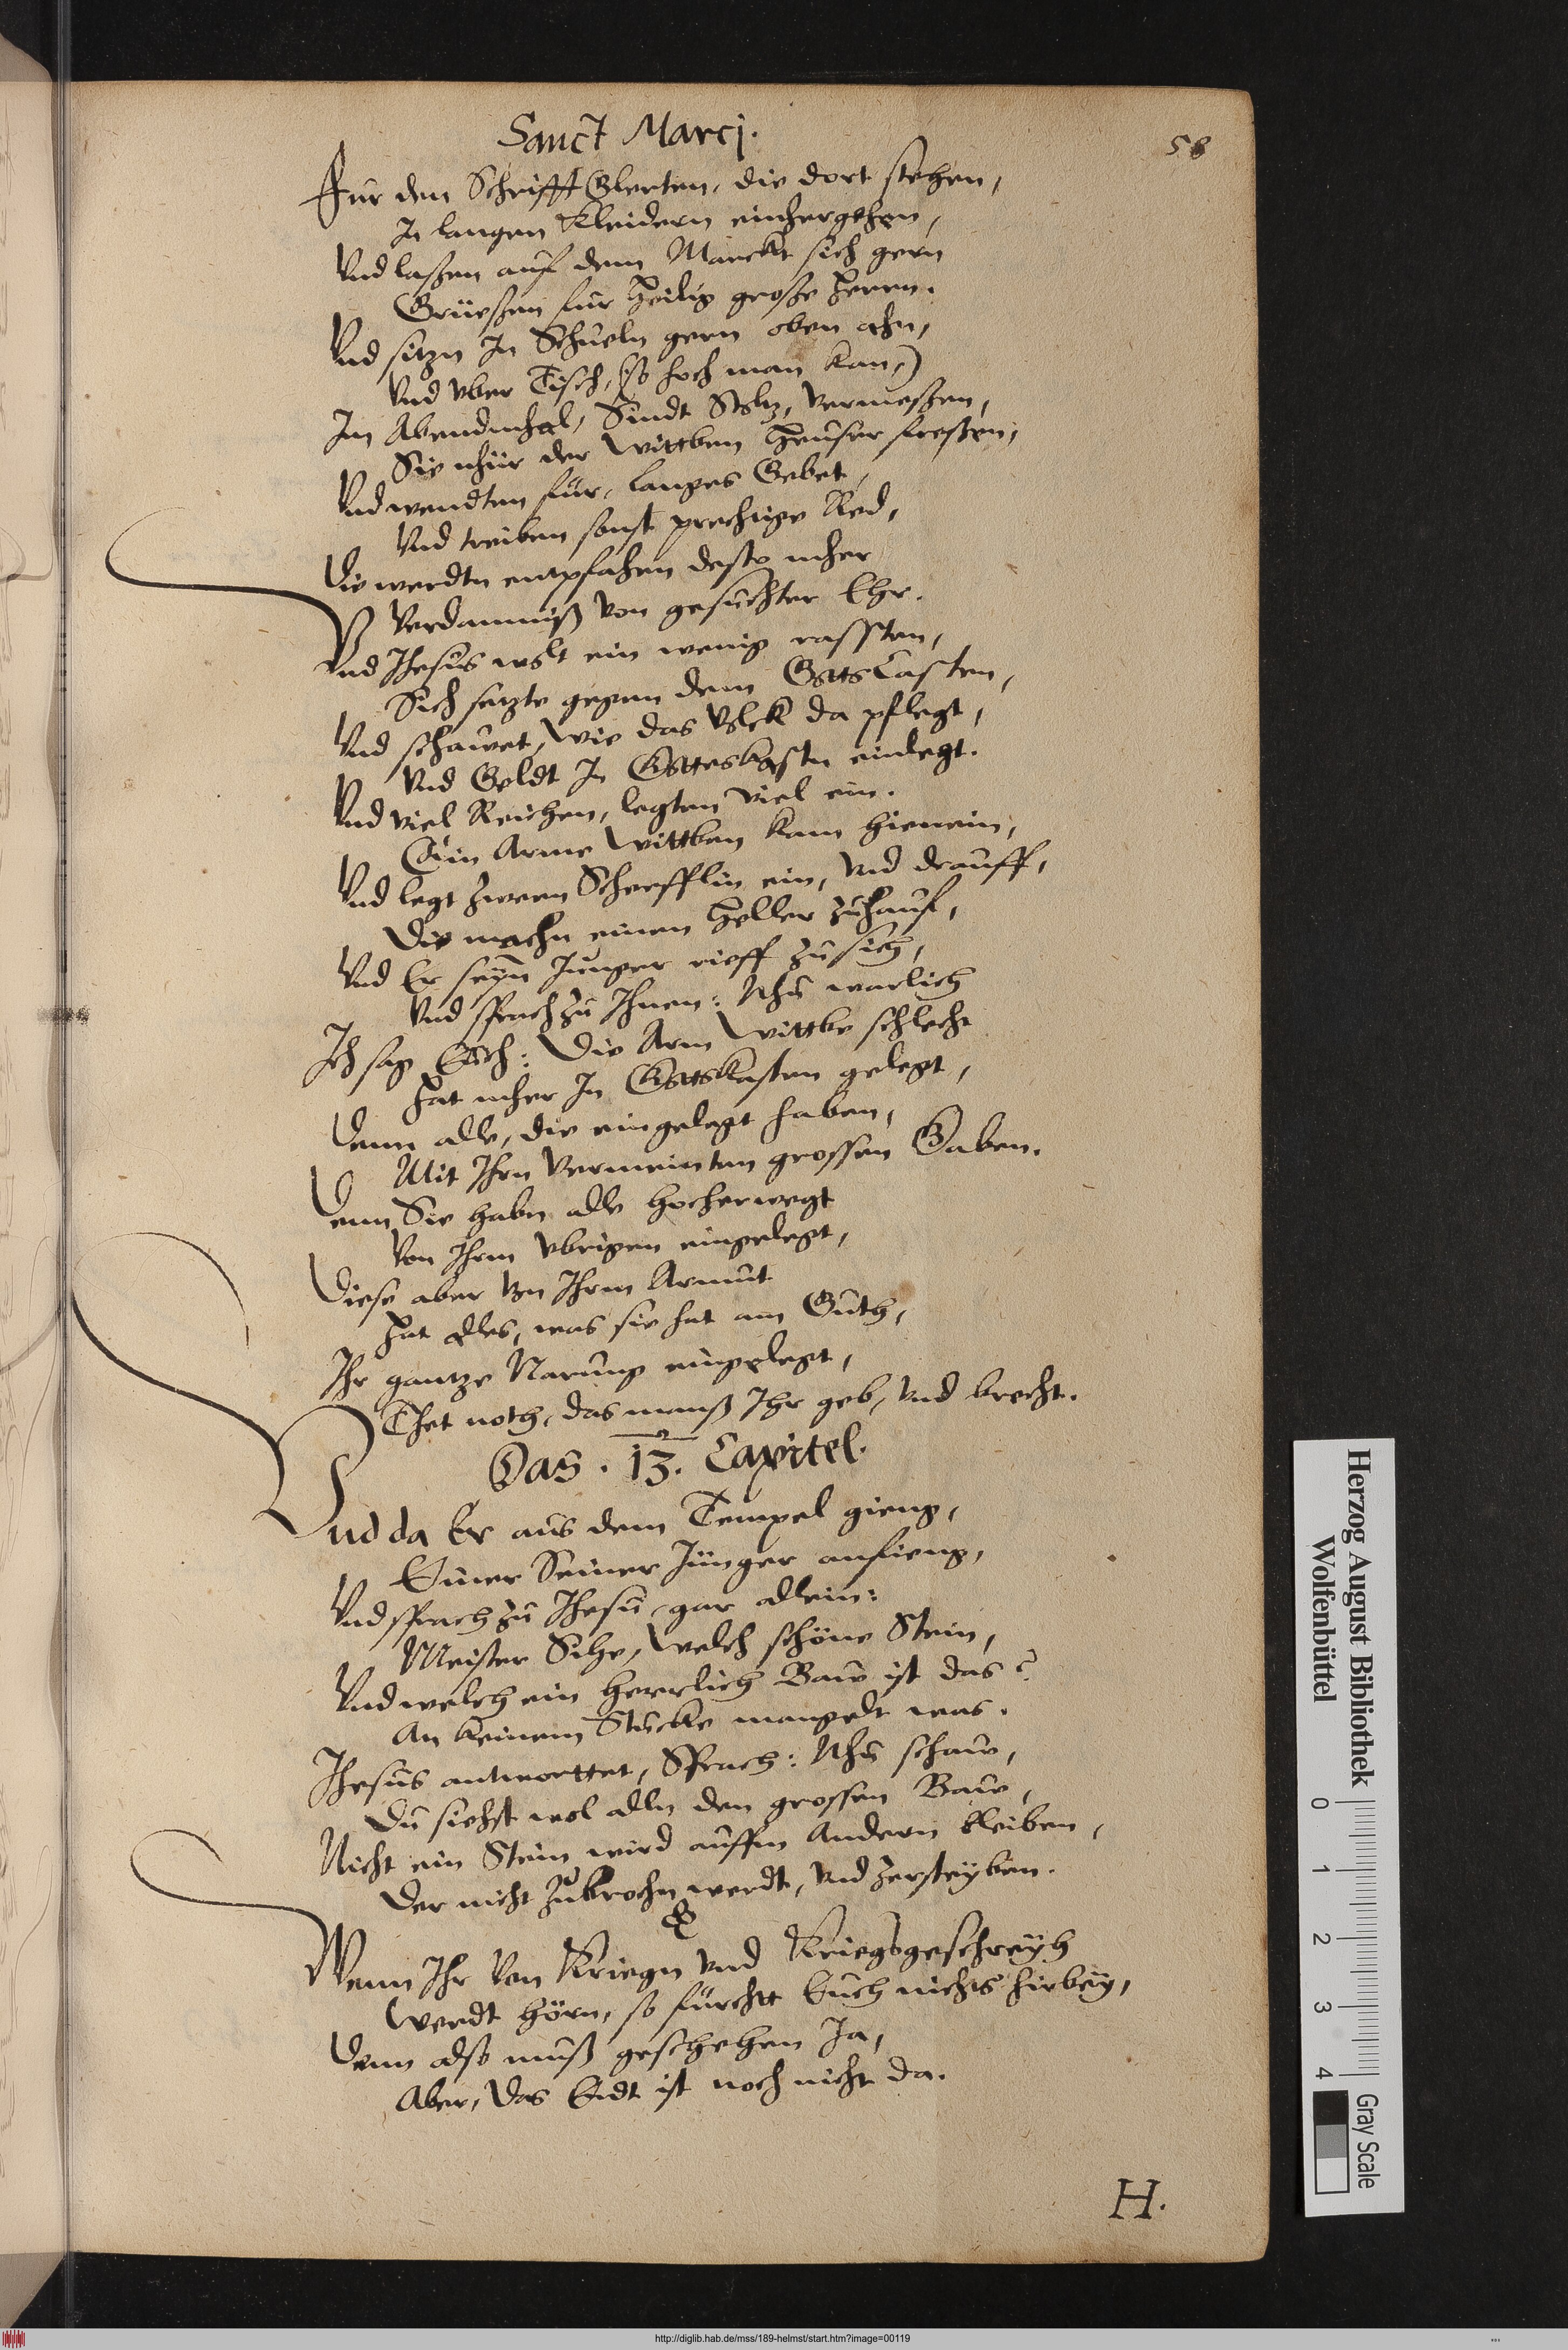 Sanct Marcj.
58
Fur den SchrifftGlerten, die dort stehen,
In langen Kleidern einhergehen,
Vnd laßen auf dem Marckt sich gern
Grüeßen für heilig große Herrn.
Vnd sitzn In Schueln gern oben ahn,
Vnd vber Tisch, (so hoch man kan,)
Im Abendmhal, Sindt Stoltz, vermeßen,
Sie nhür der Wittben Heuser freßen,
Vnd wendten für, langes Gebet,
Vnd treiben sonst prechtige Red,
Die werdtn entpfahen desto mher
Verdamniß von gesuchter Ehr.
Vnd Jhesus wolt ein wenig rassten,
Sich setzte gegen dem GottsCasten,
Vnd schawet, wie das Volck da pflegt,
Vnd Geldt In Gotteskastn einlegt.
Vnd viel Reichen, legten viel ein.
Ein Arme Wittben kam hienein,
Vnd legt zween Scherfflin ein, vnd drauff,
Die machn einen Heller zuhauf,
Vnd Er seyn Junger rieff zu sich,
Vnd sprach zu Ihnen: Nhu warlich
Ich sag Euch: Die Arm Wittbe schlecht
Hat mher In Gottskasten gelegt,
Denn alle, die eingelegt haben,
Mit Ihrn vermeinten grossen Gaben.
Denn Sie habn alle hocherwegt
Von Ihrm vbrigen eingelegt,
Diese aber von Ihrm Armut
Hat alles, was sie hat am Guth,
Ihr gantze Narung eingelegt,
Thet noth, das manß Ihr geb, vnd brecht.
Das . 13. Capitel.
Vnd da Er aus dem Tempel gieng,
Einer Seiner Jünger anfieng,
Vnd sprach zu Jhesu, gar allein:
Meister Sihe, welch schöne Stein,
Vnd welch ein herrlich Baw ist das?
An keinem Stucke mangelt was.
Jhesus antworttet, Sprach: Nhu schaw,
Du siehst wol alln den grossen Baw,
Nicht ein Stein wird auffm Andern bleiben,
Der nicht zubrochn werdt, vnd zersteyben.
Wenn Ihr von Kriegn vnd Kriegsgeschreyh
Werdt hörn, so fürchtt Euch nichts hirbey,
Denn also muß geschehen Ja,
Aber, das Endt ist noch nicht da.
H.
Herzog August Bibliothek
Wolfenbüttel
0 1 2 3 4
Gray Scale
http://diglib.hab.de/mss/189-helmst/start.htm?image=00119